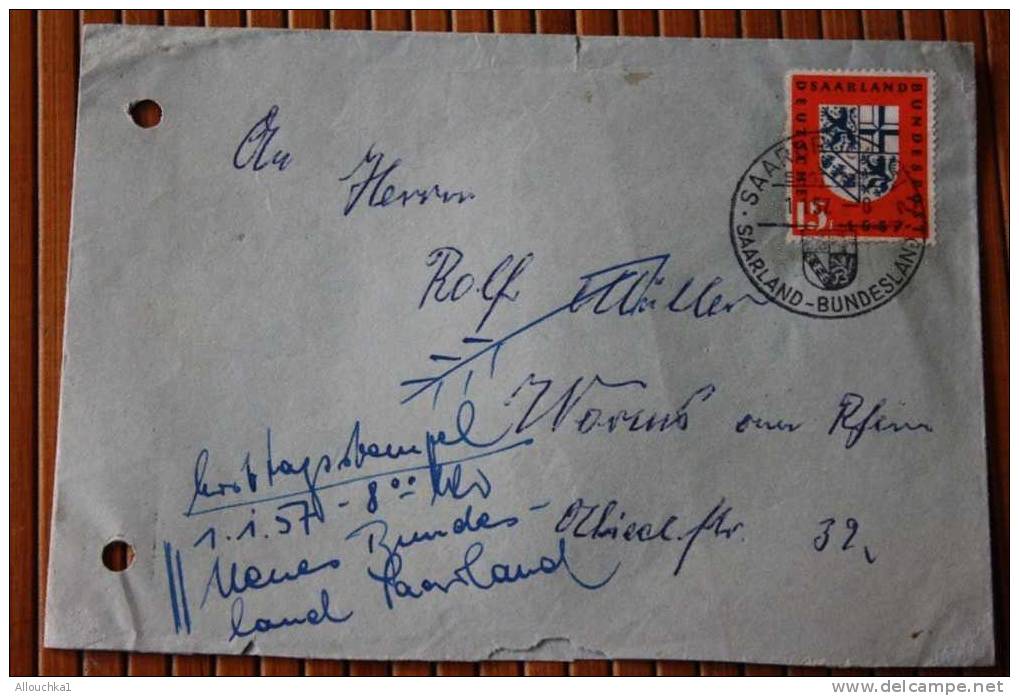 SAARLAND
DEUTSCHE
BUNDESPOST
15
1957
1.1.57.-8
SAARLAND-BUNDESLAND
An
Herrn
Rolf Müller
Worms am Rhein
32
Ersttagsstempel
1.1.57 - 8⁰⁰ Uhr
Neues Bundes-
land Saarland
Allouchka1
www.delcampe.net